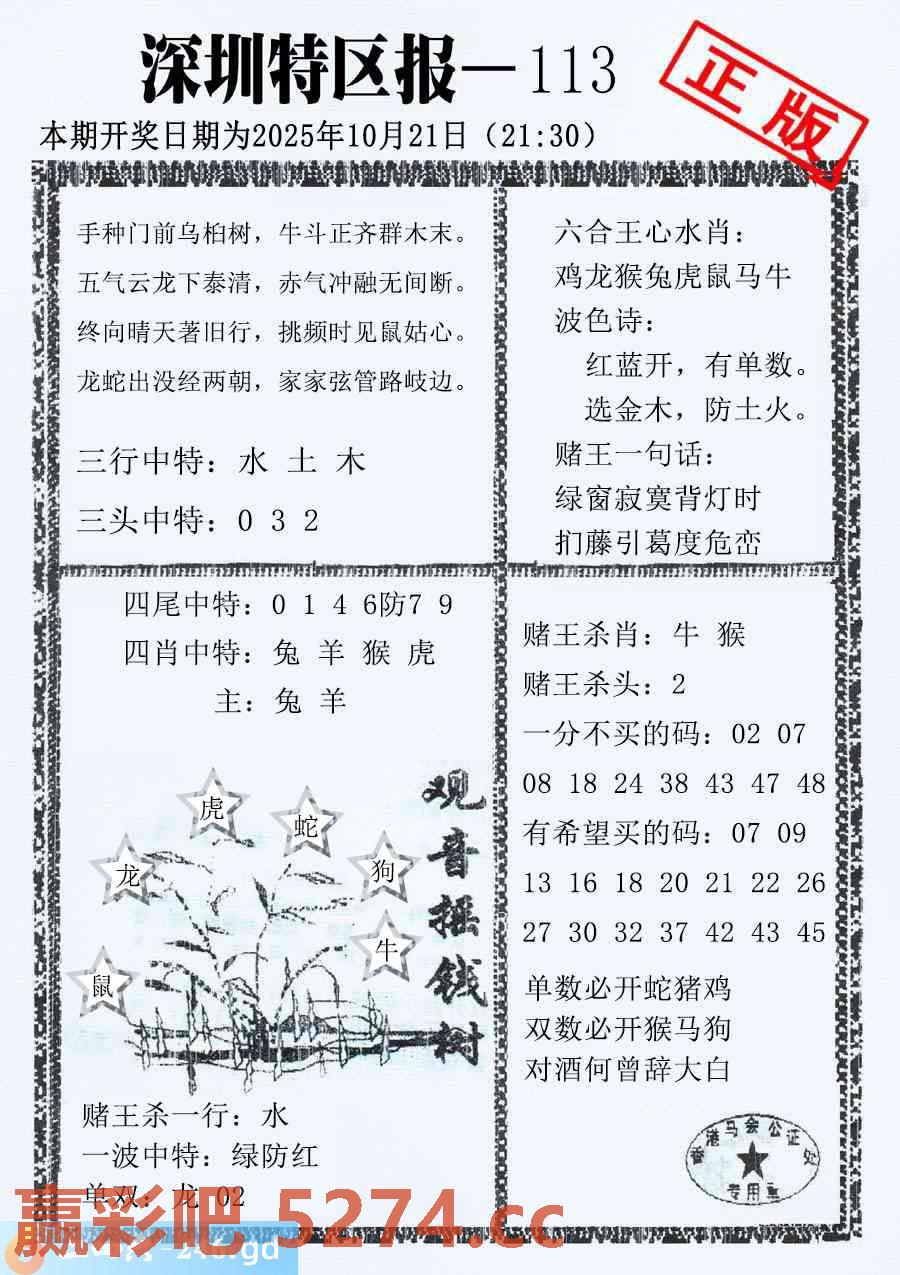 深圳特区报—113
正版
本期开奖日期为2025年10月21日（21:30）
手种门前乌柏树，牛斗正齐群木末。
五气云龙下泰清，赤气冲融无间断。
终向晴天著旧行，挑频时见鼠姑心。
龙蛇出没经两朝，家家弦管路岐边。
三行中特：水 土 木
三头中特：0 3 2
六合王心水肖：
鸡龙猴兔虎鼠马牛
波色诗：
红蓝开，有单数。
选金木，防土火。
赌王一句话：
绿窗寂寞背灯时
扪藤引葛度危峦
四尾中特：0 1 4 6防7 9
四肖中特：兔 羊 猴 虎
主：兔 羊
观音摇钱树
虎
蛇
龙
狗
牛
鼠
赌王杀一行：水
一波中特：绿防红
单双：龙 02
赌王杀肖：牛 猴
赌王杀头：2
一分不买的码：02 07
08 18 24 38 43 47 48
有希望买的码：07 09
13 16 18 20 21 22 26
27 30 32 37 42 43 45
单数必开蛇猪鸡
双数必开猴马狗
对酒何曾辞大白
香港马会公证处
专用章
赢彩吧 5274.cc